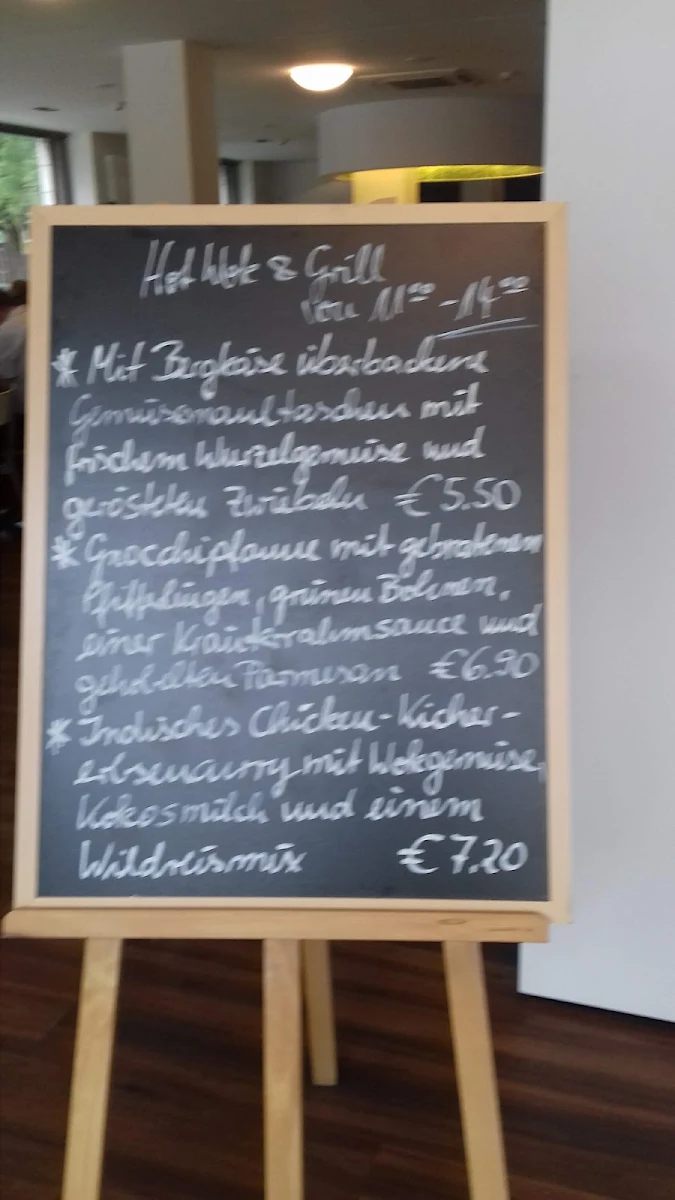 Hot Wok & Grill
von 11⁰⁰ - 14⁰⁰
* Mit Bergkäse überbackene
Gemüsemaultaschen mit
frischem Wurzelgemüse und
gerösteten Zwiebeln €5.50
* Gnocchipfanne mit gebratenen
Pfifferlingen, grünen Bohnen,
einer Kräuterrahmsauce und
gehobelten Parmesan €6.90
* Indisches Chicken-Kicher-
erbsencurry mit Wokgemüse,
Kokosmilch und einem
Wildreismix €7.20